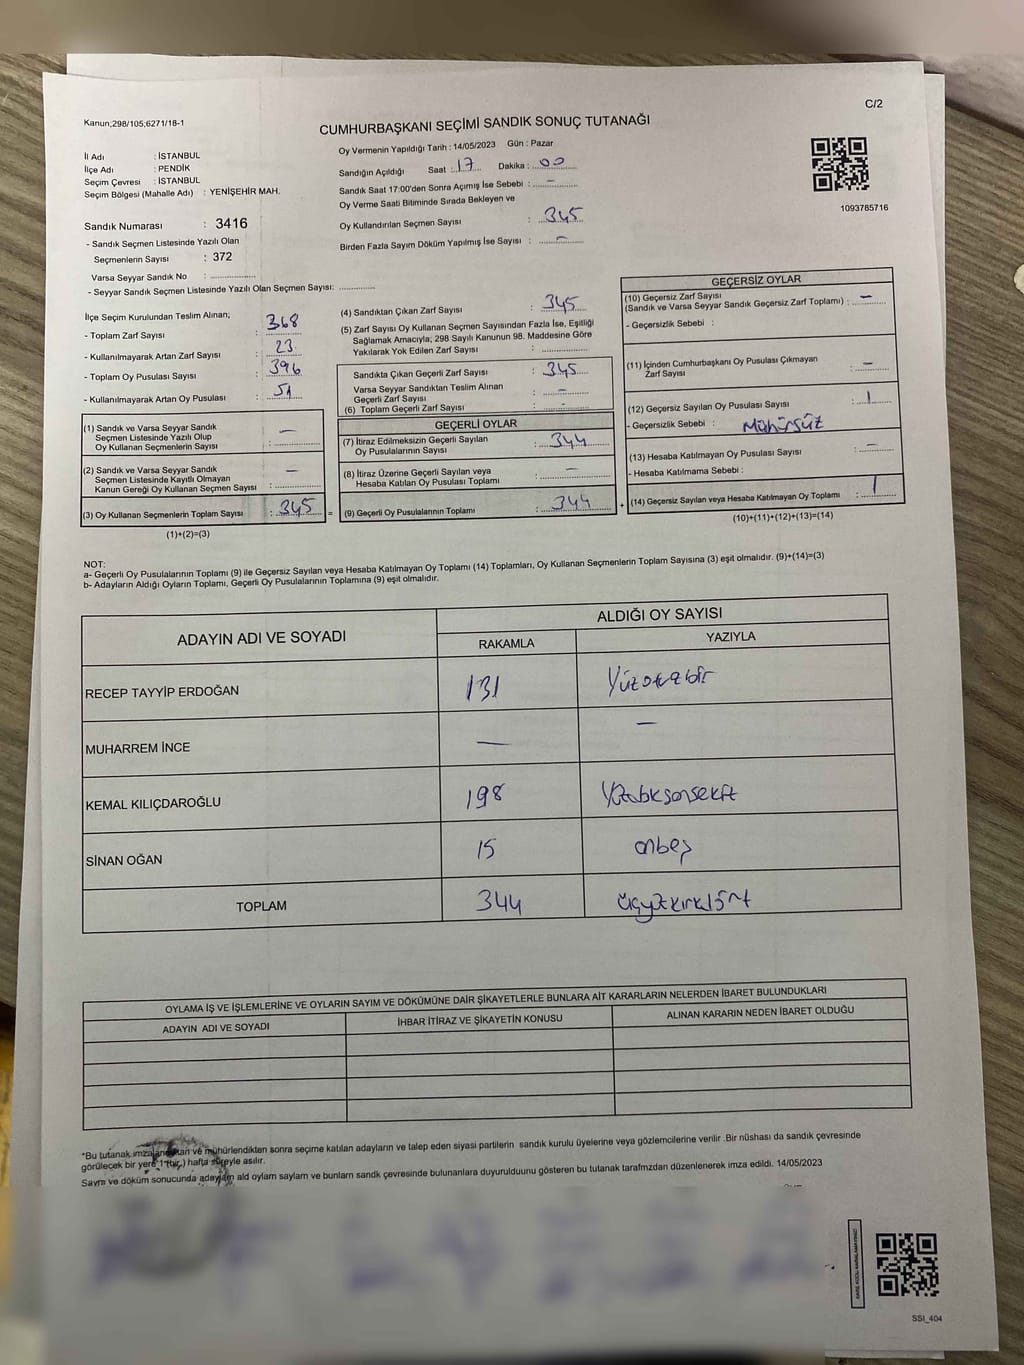 C/2
Kanun;298/105;6271/18-1
CUMHURBAŞKANI SEÇİMİ SANDIK SONUÇ TUTANAĞI
İl Adı : İSTANBUL
İlçe Adı : PENDİK
Seçim Çevresi : İSTANBUL
Seçim Bölgesi (Mahalle Adı) : YENİŞEHİR MAH.
Oy Vermenin Yapıldığı Tarih : 14/05/2023 Gün : Pazar
Sandığın Açıldığı Saat : 17 Dakika : 00
Sandık Saat 17:00'den Sonra Açımış İse Sebebi : –
Oy Verme Saati Bitiminde Sırada Bekleyen ve
Oy Kullandırılan Seçmen Sayısı : 345
Birden Fazla Sayım Döküm Yapılmış İse Sayısı : –
1093785716
Sandık Numarası : 3416
- Sandık Seçmen Listesinde Yazılı Olan
Seçmenlerin Sayısı : 372
Varsa Seyyar Sandık No :
- Seyyar Sandık Seçmen Listesinde Yazılı Olan Seçmen Sayısı:
İlçe Seçim Kurulundan Teslim Alınan;
- Toplam Zarf Sayısı : 368
- Kullanılmayarak Artan Zarf Sayısı : 23
- Toplam Oy Pusulası Sayısı : 396
- Kullanılmayarak Artan Oy Pusulası : 51
(1) Sandık ve Varsa Seyyar Sandık
Seçmen Listesinde Yazılı Olup
Oy Kullanan Seçmenlerin Sayısı : –
(2) Sandık ve Varsa Seyyar Sandık
Seçmen Listesinde Kayıtlı Olmayan
Kanun Gereği Oy Kullanan Seçmen Sayısı : –
(3) Oy Kullanan Seçmenlerin Toplam Sayısı : 345 =
(1)+(2)=(3)
(4) Sandıktan Çıkan Zarf Sayısı : 345
(5) Zarf Sayısı Oy Kullanan Seçmen Sayısından Fazla İse, Eşitliği
Sağlamak Amacıyla; 298 Sayılı Kanunun 98. Maddesine Göre
Yakılarak Yok Edilen Zarf Sayısı :
Sandıkta Çıkan Geçerli Zarf Sayısı : 345
Varsa Seyyar Sandıktan Teslim Alınan
Geçerli Zarf Sayısı : –
(6) Toplam Geçerli Zarf Sayısı : –
GEÇERLİ OYLAR
(7) İtiraz Edilmeksizin Geçerli Sayılan
Oy Pusulalarının Sayısı : 344
(8) İtiraz Üzerine Geçerli Sayılan veya
Hesaba Katılan Oy Pusulası Toplamı : –
(9) Geçerli Oy Pusulalarının Toplamı : 344 +
GEÇERSİZ OYLAR
(10) Geçersiz Zarf Sayısı
(Sandık ve Varsa Seyyar Sandık Geçersiz Zarf Toplamı) : –
- Geçersizlik Sebebi :
(11) İçinden Cumhurbaşkanı Oy Pusulası Çıkmayan
Zarf Sayısı : –
(12) Geçersiz Sayılan Oy Pusulası Sayısı : 1
- Geçersizlik Sebebi : Mühürsüz
(13) Hesaba Katılmayan Oy Pusulası Sayısı : –
- Hesaba Katılmama Sebebi :
(14) Geçersiz Sayılan veya Hesaba Katılmayan Oy Toplamı : 1
(10)+(11)+(12)+(13)=(14)
NOT:
a- Geçerli Oy Pusulalarının Toplamı (9) ile Geçersiz Sayılan veya Hesaba Katılmayan Oy Toplamı (14) Toplamları, Oy Kullanan Seçmenlerin Toplam Sayısına (3) eşit olmalıdır. (9)+(14)=(3)
b- Adayların Aldığı Oyların Toplamı, Geçerli Oy Pusulalarının Toplamına (9) eşit olmalıdır.
ADAYIN ADI VE SOYADI
ALDIĞI OY SAYISI
RAKAMLA YAZIYLA
RECEP TAYYİP ERDOĞAN 131 Yüzotuzbir
MUHARREM İNCE — –
KEMAL KILIÇDAROĞLU 198 Yüzdoksansekiz
SİNAN OĞAN 15 onbeş
TOPLAM 344 üçyüzkırkdört
OYLAMA İŞ VE İŞLEMLERİNE VE OYLARIN SAYIM VE DÖKÜMÜNE DAİR ŞİKAYETLERLE BUNLARA AİT KARARLARIN NELERDEN İBARET BULUNDUKLARI
ADAYIN ADI VE SOYADI İHBAR İTİRAZ VE ŞİKAYETİN KONUSU ALINAN KARARIN NEDEN İBARET OLDUĞU
*Bu tutanak imzalandıktan ve mühürlendikten sonra seçime katılan adayların ve talep eden siyasi partilerin sandık kurulu üyelerine veya gözlemcilerine verilir .Bir nüshası da sandık çevresinde
görülecek bir yere 1 (bir) hafta süreyle asılır.
Sayım ve döküm sonucunda adayların ald oylam saylam ve bunların sandk çevresinde bulunanlara duyurulduunu gösteren bu tutanak tarafmzdan düzenlenerek imza edildi. 14/05/2023
SSI_404